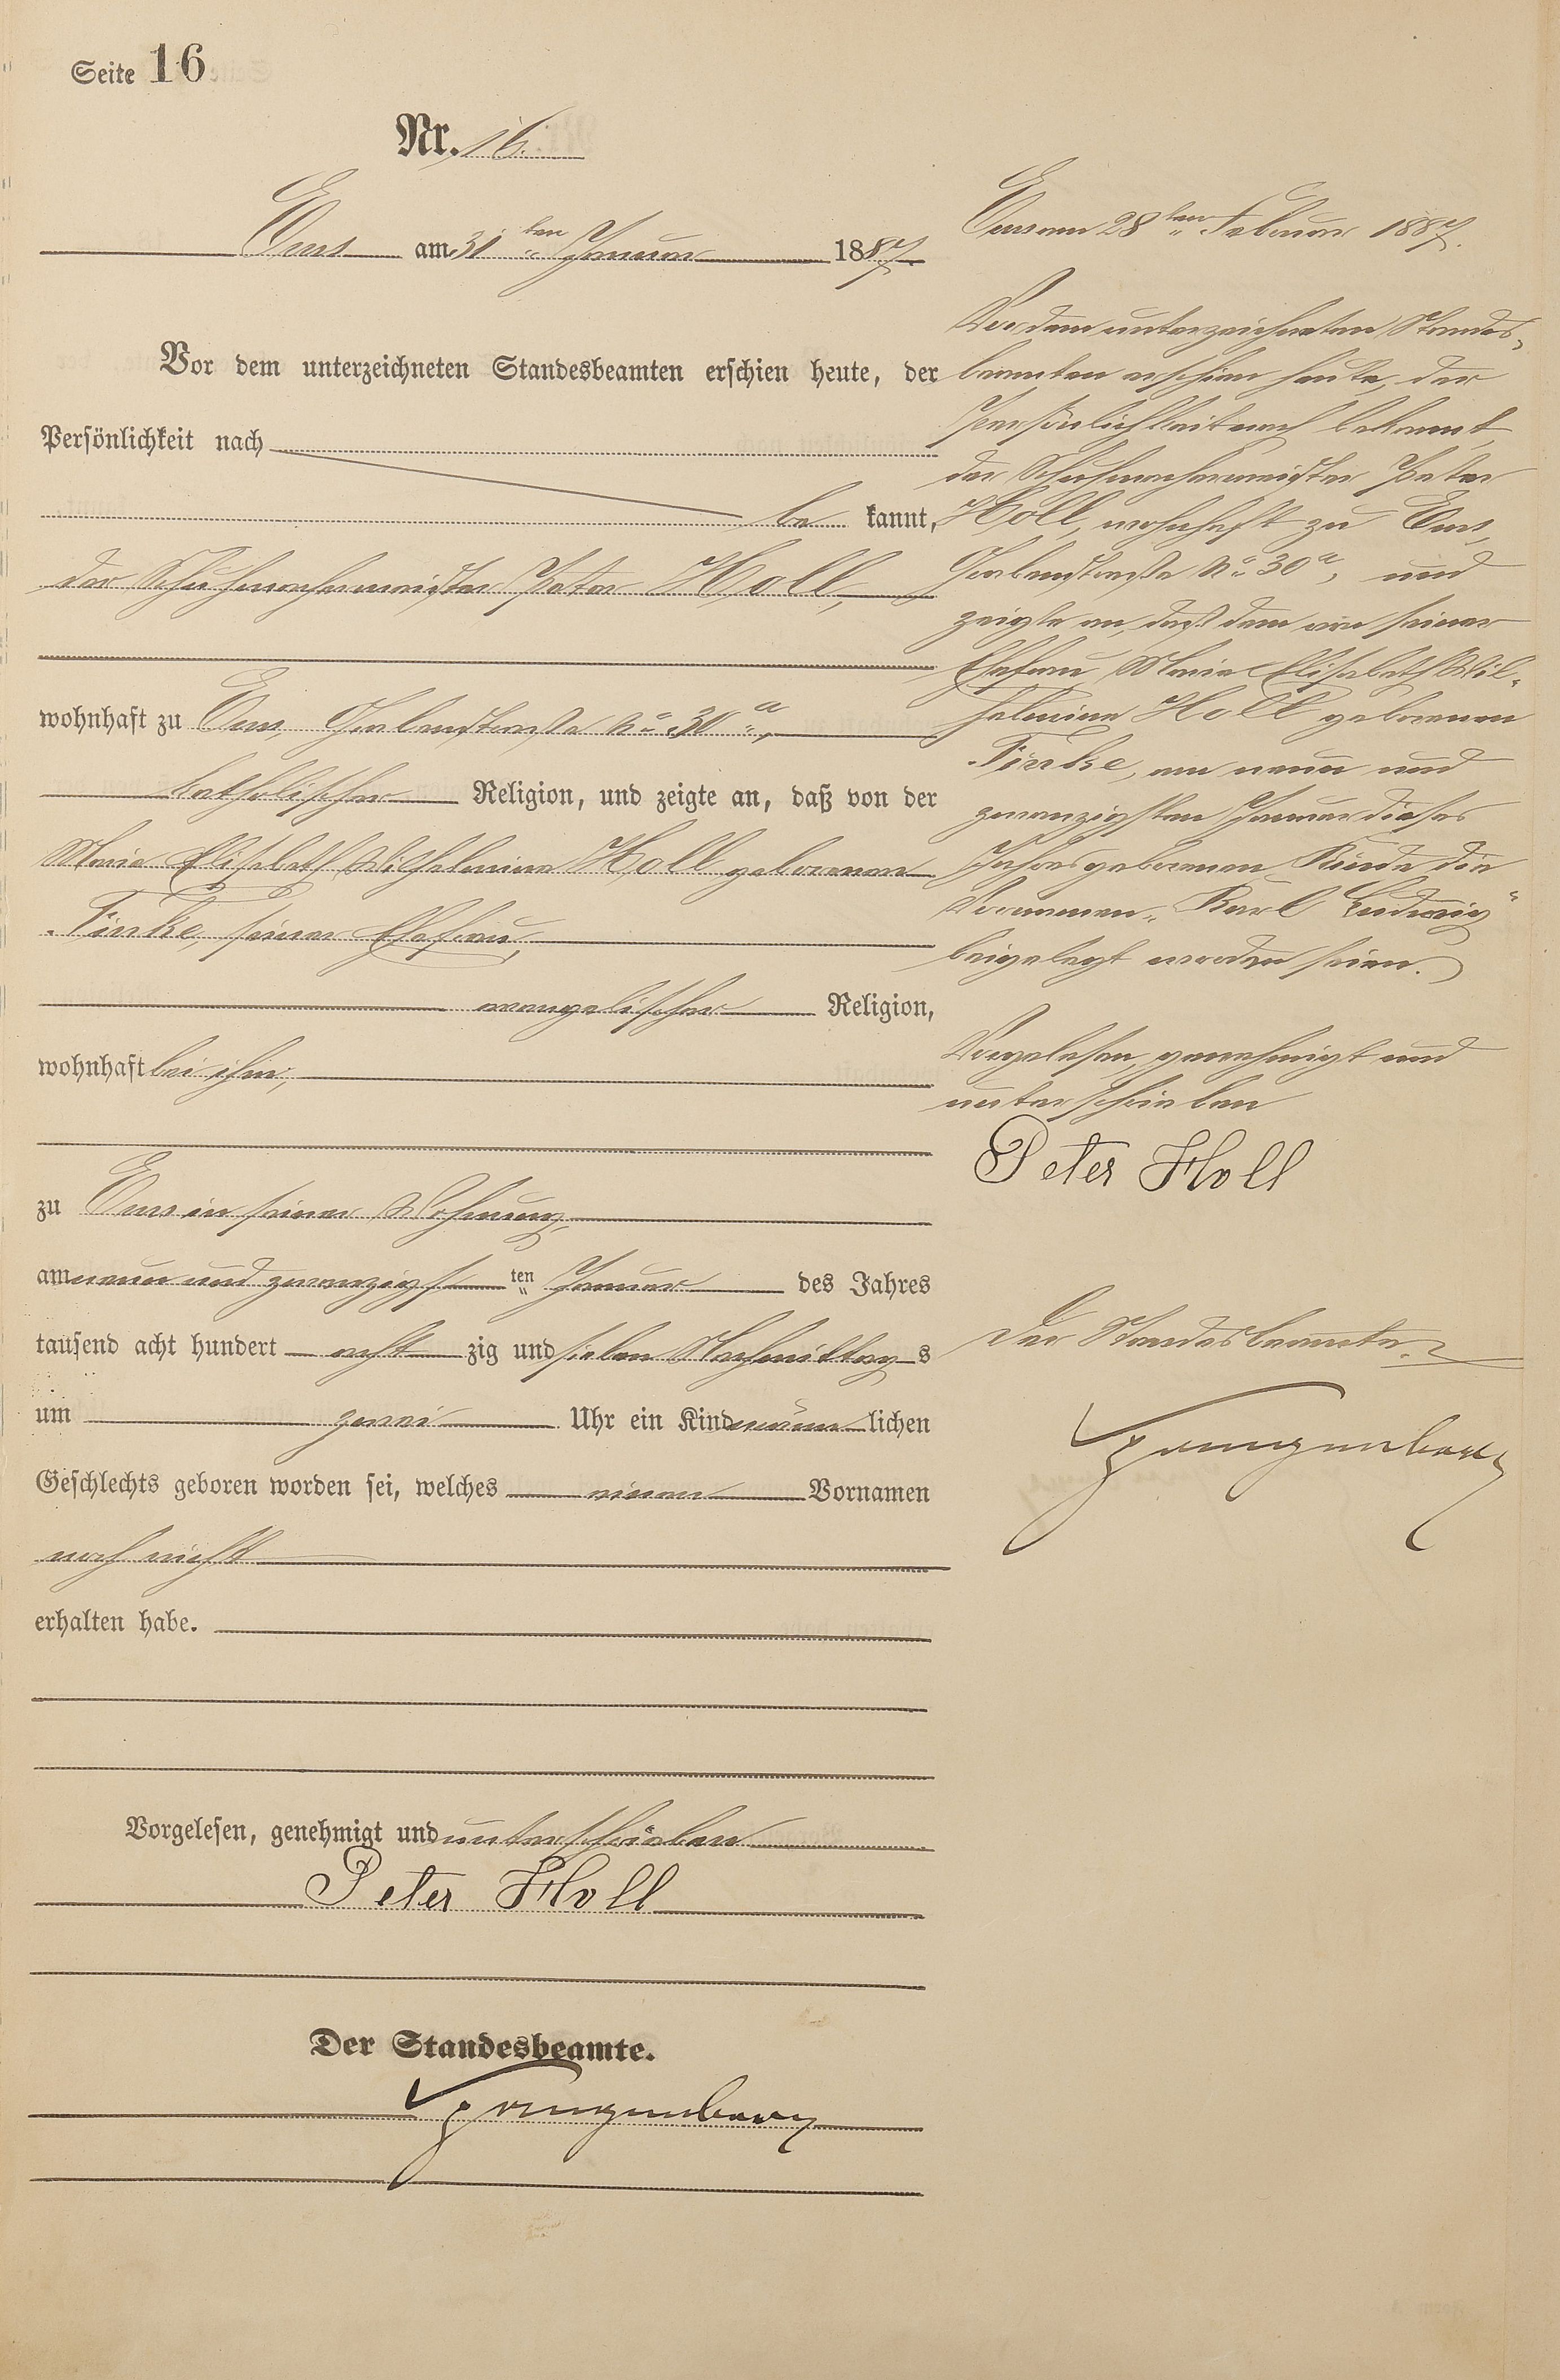 Seite 16
Nr. 16.
Ems am 31ten Januar 1887.
Vor dem unterzeichneten Standesbeamten erschien heute, der
Persönlichkeit nach
be kannt,
der Schuhmachermeister Peter Holl,
wohnhaft zu Ems, Grabenstraße No 30a,
katholischer Religion, und zeigte an, daß von der
Marie Elisabeth Wilhelmine Holl geborenen
Finke, seiner Ehefrau,
evangelischer Religion,
wohnhaft bei ihm,
zu Ems in seiner Wohnung,
am neun und zwanzigsten Januar des Jahres
tausend acht hundert acht zig und sieben Nachmittags
um zwei Uhr ein Kind männlichen
Geschlechts geboren worden sei, welches einen Vornamen
noch nicht
erhalten habe.
Vorgelesen, genehmigt und unterschrieben
Peter Holl
Der Standesbeamte.
Ems am 28ten Februar 1887.
Vor dem unterzeichneten Standes-
beamten erschien heute, der
Persönlichkeit nach bekannt,
der Schuhmachermeister Peter
Holl, wohnhaft zu Ems,
Grabenstraße No 30a, und
zeigte an, daß dem von seiner
Ehefrau Marie Elisabeth Wil-
helmine Holl geborenen
Finke, am neun und
zwanzigsten Januar dieses
Jahres geborenen Kinde die
Vornamen „Karl Ludwig“
beigelegt worden seien.
Vorgelesen, genehmigt und
unterschrieben
Peter Holl
Der Standesbeamte.